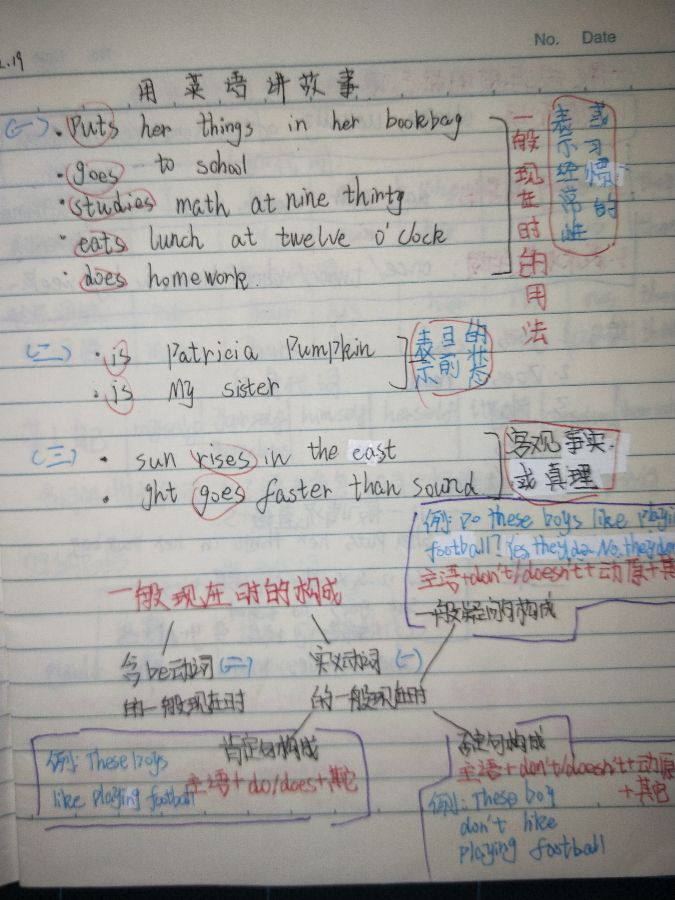 2.19
No. Date
用英语讲故事
(一)·Puts her things in her bookbag
·goes to school
·studies math at nine thinty
·eats lunch at twelve o'clock
·does homework.
一般现在时的用法
表示经常性
或习惯的
(二)·is Patricia Pumpkin
·is My sister
表示
目前
的状态
(三)·sun rises in the east
·ght goes faster than sound
客观事实
或真理
例: Do these boys like playi
football? Yes, they do. No, they don
主语+don't/doesn't+动原+其
一般疑问句构成
一般现在时的构成
含be动词(二)
的一般现在时
实义动词(一)
的一般现在时
肯定句构成
主语+do/does+其它
例: These boys
like playing football
否定句构成
主语+don't/doesn't+动原
+其它
例: These boy
don't like
playing football